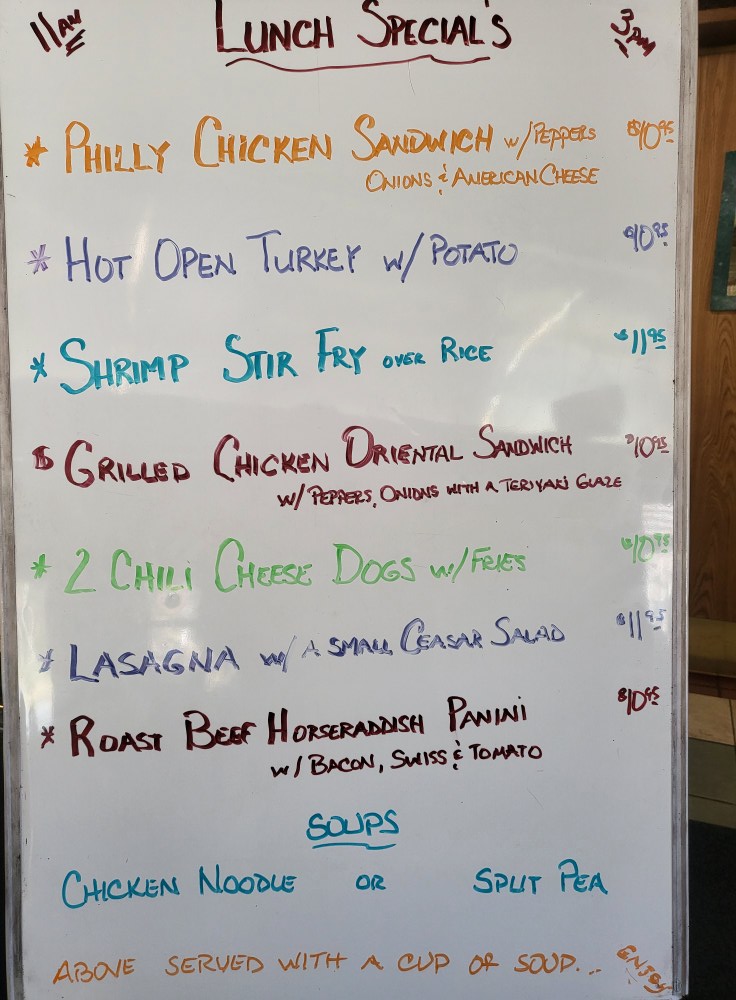 11AM LUNCH SPECIAL'S 3PM
* PHILLY CHICKEN SANDWICH w/PEPPERS $10.95
ONIONS & AMERICAN CHEESE
* HOT OPEN TURKEY w/ POTATO $10.95
* SHRIMP STIR FRY OVER RICE $11.95
$ GRILLED CHICKEN ORIENTAL SANDWICH $10.95
w/ PEPPERS, ONIONS WITH A TERIYAKI GLAZE
* 2 CHILI CHEESE DOGS w/FRIES $10.95
* LASAGNA w/ A SMALL CEASAR SALAD $11.95
* ROAST BEEF HORSERADDISH PANINI $10.95
w/ BACON, SWISS & TOMATO
SOUPS
CHICKEN NOODLE OR SPLIT PEA
ABOVE SERVED WITH A CUP OF SOUP... ENJOY